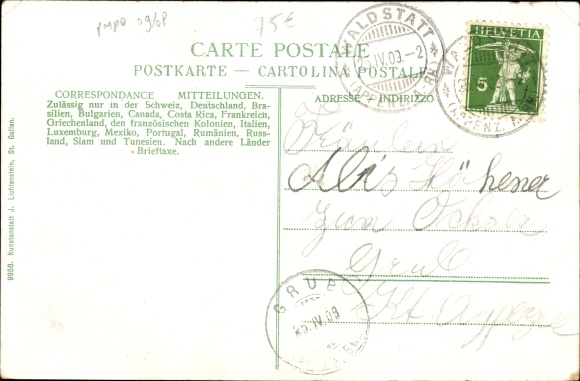 75€
CARTE POSTALE
POSTKARTE — CARTOLINA POSTALE
CORRESPONDANCE MITTEILUNGEN.
Zulässig nur in der Schweiz, Deutschland, Bra-
silien, Bulgarien, Canada, Costa Rica, Frankreich,
Griechenland, den französischen Kolonien, Italien,
Luxemburg, Mexiko, Portugal, Rumänien, Russ-
land, Siam und Tunesien. Nach andere Länder
Brieftaxe.
9958. Kunstanstalt J. Lichtenstein, St. Gallen.
ADRESSE INDIRIZZO
WALDSTATT
IV.09.–2
HELVETIA
5
Fräulein
Zum Ochsen
Grub
Kt. Appenzell
GRUB
IV.09